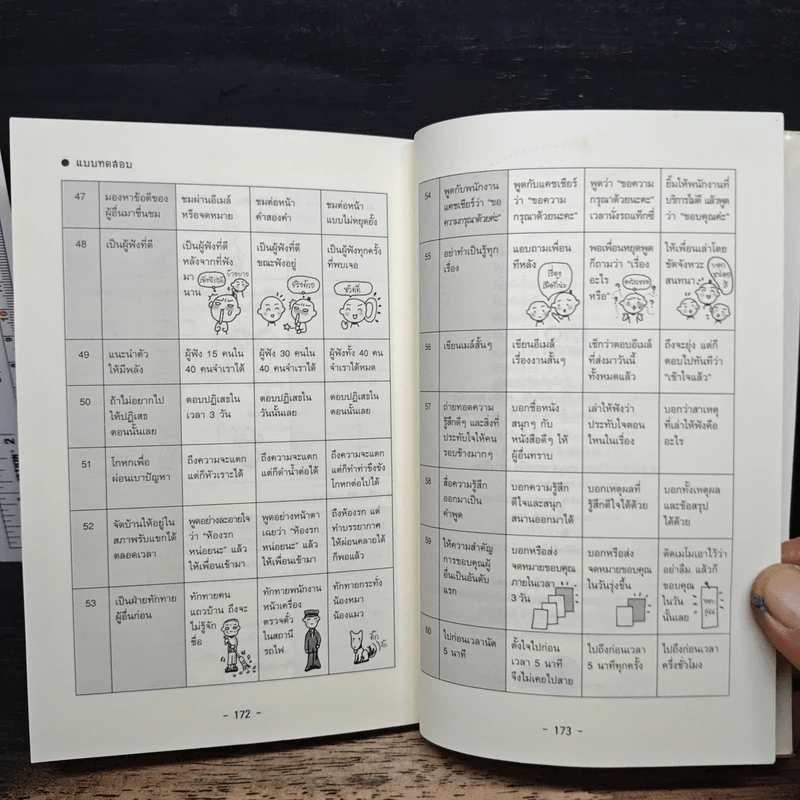 แบบทดสอบ
47
มองหาข้อดีของ
ผู้อื่นมาชื่นชม
ชมผ่านอีเมล์
หรือจดหมาย
ชมต่อหน้า
คำสองคำ
ชมต่อหน้า
แบบไม่หยุดยั้ง
48
เป็นผู้ฟังที่ดี
เป็นผู้ฟังที่ดี
หลังจากที่ฟัง
มา
นาน
เป็นผู้ฟังที่ดี
ขณะฟังอยู่
จริงด้วย
เป็นผู้ฟังทุกครั้ง
ที่พบเจอ
49
แนะนำตัว
ให้มีพลัง
ผู้ฟัง 15 คนใน
40 คนจำเราได้
ผู้ฟัง 30 คนใน
40 คนจำเราได้
ผู้ฟังทั้ง 40 คน
จำเราได้หมด
50
ถ้าไม่อยากไป
ให้ปฏิเสธ
ตอนนั้นเลย
ตอบปฏิเสธใน
เวลา 3 วัน
ตอบปฏิเสธใน
วันนั้นเลย
ตอบปฏิเสธใน
ตอนนั้นเลย
51
โกหกเพื่อ
ผ่อนเบาปัญหา
ถึงความจะแตก
แต่ก็หัวเราะได้
ถึงความจะแตก
แต่ก็ดำน้ำต่อได้
ถึงความจะแตก
แต่ก็ทำท่าขึงขัง
โกหกต่อไปได้
52
จัดบ้านให้อยู่ใน
สภาพรับแขกได้
ตลอดเวลา
พูดอย่างละอายใจ
ว่า "ห้องรก
หน่อยนะ" แล้ว
ให้เพื่อนเข้ามา
พูดอย่างหน้าตา
เฉยว่า "ห้องรก
หน่อยนะ" แล้ว
ให้เพื่อนเข้ามา
ถึงห้องรก แต่
ทำบรรยากาศ
ให้ผ่อนคลายได้
ก็พอแล้ว
53
เป็นฝ่ายทักทาย
ผู้อื่นก่อน
ทักทายคน
แถวบ้าน ถึงจะ
ไม่รู้จัก
ชื่อ
ทักทายพนักงาน
หน้าเครื่อง
ตรวจตั๋ว
ในสถานี
รถไฟ
ทักทายกระทั่ง
น้องหมา
น้องแมว
ทัก
จ้ะ
- 172 -
54
พูดกับพนักงาน
แคชเชียร์ว่า "ขอ
ความกรุณาด้วยค่ะ"
พูดกับแคชเชียร์
ว่า "ขอความ
กรุณาด้วยนะคะ"
พูดว่า "ขอความ
กรุณาด้วยนะคะ"
เวลานั่งรถแท็กซี่
ยิ้มให้พนักงานที่
บริการไม่ดี แล้วพูด
ว่า "ขอบคุณค่ะ"
55
อย่าทำเป็นรู้ทุก
เรื่อง
แอบถามเพื่อน
ทีหลัง
พอเพื่อนหยุดพูด
ก็ถามว่า "เรื่อง
อะไร
หรือ"
ให้เพื่อนเล่าโดย
ขัดจังหวะ
สนทนา
56
เขียนเมล์สั้นๆ
เขียนอีเมล์
เรื่องงานสั้นๆ
เช็กว่าตอบอีเมล์
ที่ส่งมาวันนี้
ทั้งหมดแล้ว
ถึงจะยุ่ง แต่ก็
ตอบไปทันทีว่า
"เข้าใจแล้ว"
57
ถ่ายทอดความ
รู้สึกดีๆ และสิ่งที่
ประทับใจให้คน
รอบข้างมากๆ
บอกชื่อหนัง
สนุกๆ กับ
หนังสือดีๆ ให้
ผู้อื่นทราบ
เล่าให้ฟังว่า
ประทับใจตอน
ไหนในเรื่อง
บอกว่าสาเหตุ
ที่เล่าให้ฟังคือ
อะไร
58
สื่อความรู้สึก
ออกมาเป็น
คำพูด
บอกความรู้สึก
ดีใจและสนุก
สนานออกมาได้
บอกเหตุผลที่
รู้สึกดีใจได้ด้วย
บอกทั้งเหตุผล
และข้อสรุป
ได้ด้วย
59
ให้ความสำคัญ
การขอบคุณผู้
อื่นเป็นอันดับ
แรก
บอกหรือส่ง
จดหมายขอบคุณ
ภายในเวลา
3 วัน
บอกหรือส่ง
จดหมายขอบคุณ
ในวันรุ่งขึ้น
ติดเมโมเอาไว้ว่า
อย่าลืม แล้วก็
ขอบคุณ
ในวัน
นั้นเลย
ขอบ
คุณ
60
ไปก่อนเวลานัด
5 นาที
ตั้งใจไปก่อน
เวลา 5 นาที
จึงไม่เคยไปสาย
ไปถึงก่อนเวลา
5 นาทีทุกครั้ง
ไปถึงก่อนเวลา
ครึ่งชั่วโมง
- 173 -